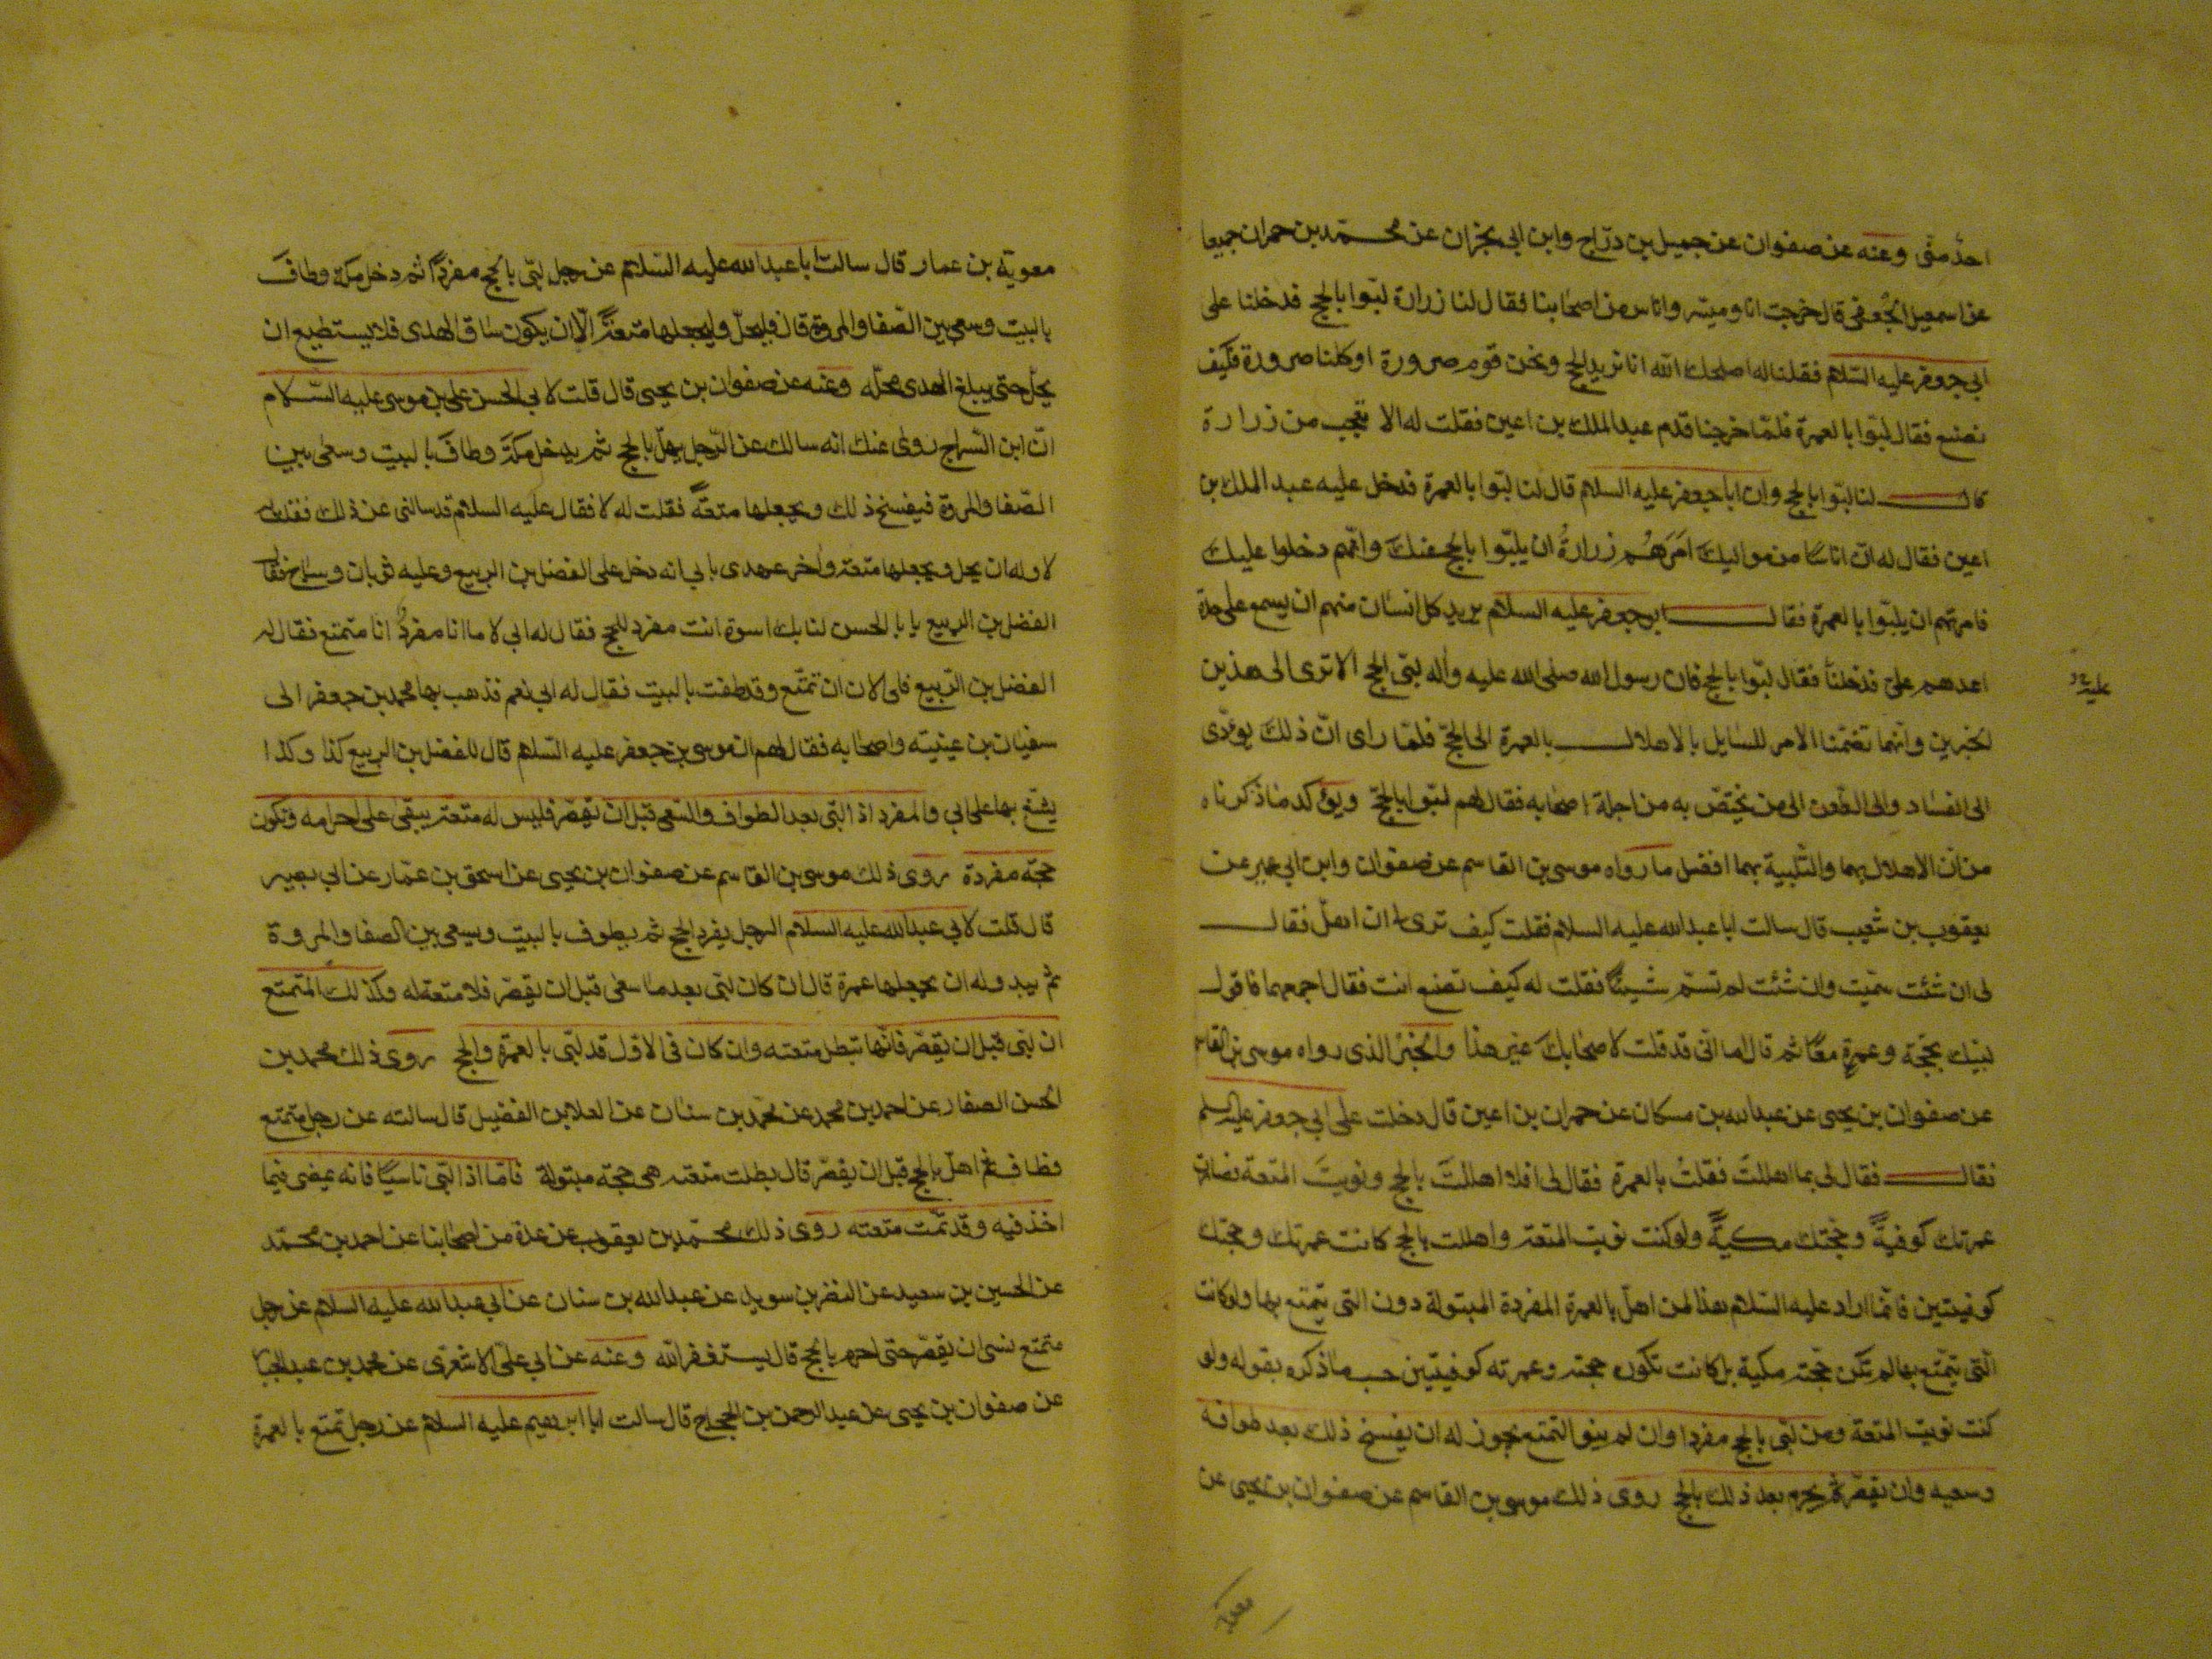 احد منى وعنه عن صفوان عن جميل بن دراج وابن ابى نجران عن محمد بن حمران جميعا
عن اسمعيل الجعفى قال خرجت انا وميسر واناس من اصحابنا فقال لنا زرارة لبوا بالحج فدخلنا على
ابى جعفر عليه السلام فقلنا له اصلحك الله انا نريد الحج ونحن قوم صرورة او كلنا صرورة فكيف
نصنع فقال لبوا بالعمرة فلما خرجنا قدم عبد الملك بن اعين فقلت له الا تعجب من زرارة
قال لنا لبوا بالحج وان ابا جعفر عليه السلام قال لنا لبوا بالعمرة فدخل عليه عبد الملك بن
اعين فقال له ان اناسا من مواليك امرهم زرارة ان يلبوا بالحج عنك وانهم دخلوا عليك
فامرتهم ان يلبوا بالعمرة فقال ابو جعفر عليه السلام يريد كل انسان منهم ان يسمع على حدة
اعدهم على فدخلنا فقال لبوا بالحج فان رسول الله صلى الله عليه واله لبى بالحج الا ترى الى هذين
الخبرين وانهما تضمنا الامر للسايل بالاهلال بالعمرة الى الحج فلما راى ان ذلك يؤدى
الى الفساد والى الطعن الى من يختص به من اجلة اصحابه فقال لهم لبوا بالحج ويؤكد ما ذكرناه
من ان الاهلال بهما والتلبية بهما افضل ما رواه موسى بن القاسم عن صفوان وابن ابى عمير عن
يعقوب بن شعيب قال سالت ابا عبد الله عليه السلام فقلت كيف ترى لى ان اهل فقال
لى ان شئت سميت وان شئت لم تسم شيئا فقلت له كيف تصنع انت فقال اجمعهما فاقول
لبيك بحجة وعمرة معا ثم قال اما انى قد قلت لاصحابك غير هذا والخبر الذى رواه موسى بن القاسم
عن صفوان بن يحيى عن عبد الله بن مسكان عن حمران بن اعين قال دخلت على ابى جعفر عليه السلم
فقال فقال لى بما اهللت فقلت بالعمرة فقال لى افلا اهللت بالحج ونويت المتعة فصارت
عمرتك كوفية وحجتك مكية ولو كنت نويت المتعة واهللت بالحج كانت عمرتك وحجتك
كوفيتين فانما اراد عليه السلام هذا لمن اهل بالعمرة المفردة المبتولة دون التى يتمتع بها ولو كانت
التى يتمتع بها لم تكن حجته مكية بل كانت تكون حجته وعمرته كوفيتين حسب ما ذكره بقوله ولو
كنت نويت المتعة ومن لبى بالحج مفردا وان لم ينو التمتع يجوز له ان يفسخ ذلك بعد طوافه
وسعيه وان يقصر ثم يحرم بعد ذلك بالحج روى ذلك موسى بن القاسم عن صفوان بن يحيى عن
معوية بن عمار قال سالت ابا عبد الله عليه السلام عن رجل لبى بالحج مفردا ثم دخل مكة وطاف
بالبيت وسعى بين الصفا والمروة قال فليحل وليجعلها متعة الا ان يكون ساق الهدى فلا يستطيع ان
يحل حتى يبلغ الهدى محله وعنه عن صفوان بن يحيى قال قلت لابى الحسن على بن موسى عليه السلام
ان ابن السراج روى عنك انه سالك عن الرجل يهل بالحج ثم يدخل مكة وطاف بالبيت وسعى بين
الصفا والمروة فيفسخ ذلك ويجعلها متعة فقلت له لا فقال عليه السلام قد سالنى عن ذلك فقلت
لا وله ان يحل ويجعلها متعة واخر عهدى بابى انه دخل على الفضل بن الربيع وعليه ثوبان وساج فقال
الفضل بن الربيع يا ابا الحسن لنا بك اسوة انت مفرد للحج فقال له ابى لا ما انا مفرد انا متمتع فقال له
الفضل بن الربيع فلى الان ان تمتع وقد طفت بالبيت فقال له ابى نعم فذهب بها محمد بن جعفر الى
سفيان بن عيينة واصحابه فقال لهم ان موسى بن جعفر عليه السلام قال للفضل بن الربيع كذا وكذا
يشنع بها على ابى والمفرد اذا لبى بعد الطواف والسعى قبل ان يقصر فليس له متعة يبقى على احرامه وتكون
حجته مفردة روى ذلك موسى بن القاسم عن صفوان بن يحيى عن اسحق بن عمار عن ابى بصير
قال قلت لابى عبد الله عليه السلام الرجل يفرد الحج ثم يطوف بالبيت وسعى بين الصفا والمروة
ثم يبدو له ان يجعلها عمرة قال ان كان لبى بعد ما سعى قبل ان يقصر فلا متعة له وكذلك المتمتع
ان لبى قبل ان يقصر فانها تبطل متعته وان كان فى الاول قد لبى بالعمرة والحج روى ذلك محمد بن
الحسن الصفار عن احمد بن محمد عن محمد بن سنان عن العلا بن الفضيل قال سالته عن رجل متمتع
فطاف ثم اهل بالحج قبل ان يقصر قال بطلت متعته هى حجة مبتولة فاما اذا لبى ناسيا فانه يمضى فيما
اخذ فيه وقد تمت متعته روى ذلك محمد بن يعقوب عن عدة من اصحابنا عن احمد بن محمد
عن الحسين بن سعيد عن النضر بن سويد عن عبد الله بن سنان عن ابى عبد الله عليه السلام عن رجل
متمتع نسى ان يقصر حتى احرم بالحج قال يستغفر الله وعنه عن ابى على الاشعرى عن محمد بن عبد الجبا
عن صفوان بن يحيى عن عبد الرحمن بن الحجاج قال سالت ابا ابرهيم عليه السلام عن رجل تمتع بالعمرة